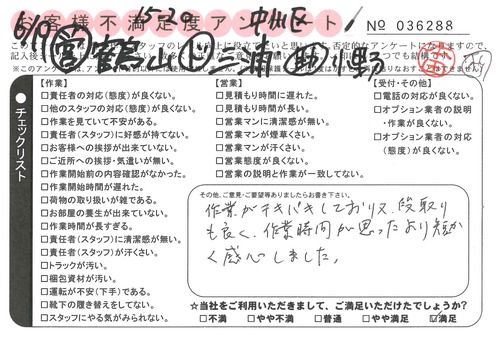 お客様不満足度アンケート!
No 036288
6/19
15:30
中川区
三浦
小野
チェックリスト
【作業】
□責任者の対応(態度)が良くない。
□他のスタッフの対応(態度)が良くない。
□作業を見ていて不安がある。
□責任者(スタッフ)に好感が持てない。
□お客様への挨拶が出来ていない。
□ご近所への挨拶・気遣いが無い。
□作業開始前の内容確認がなかった。
□作業開始時間が遅れた。
□荷物の取り扱いが雑である。
□お部屋の養生が出来ていない。
□作業時間が長すぎる。
□責任者(スタッフ)に清潔感が無い。
□責任者(スタッフ)が汗くさい。
□トラックが汚い。
□梱包資材が汚い。
□運転が不安(下手)である。
□靴下の履き替えをしてない。
□スタッフにやる気がみられない。
【営業】
□見積もり時間に遅れた。
□見積もり時間が長い。
□営業マンに清潔感が無い。
□営業マンが煙草くさい。
□営業マンが汗くさい。
□営業態度が良くない。
□営業の説明と作業が一致してない。
【受付・その他】
□電話の対応が良くない。
□オプション業者の説明
・作業が良くない。
□オプション業者の対応
(態度)が良くない。
その他、ご意見・ご要望等ありましたらお書き下さい。
作業がテキパキしており又、段取り
も良く、作業時間が思ったより短か
く感心しました。
☆当社をご利用いただきまして、ご満足いただけたでしょうか?
□不満 □やや不満 □普通 □やや満足 ☑満足